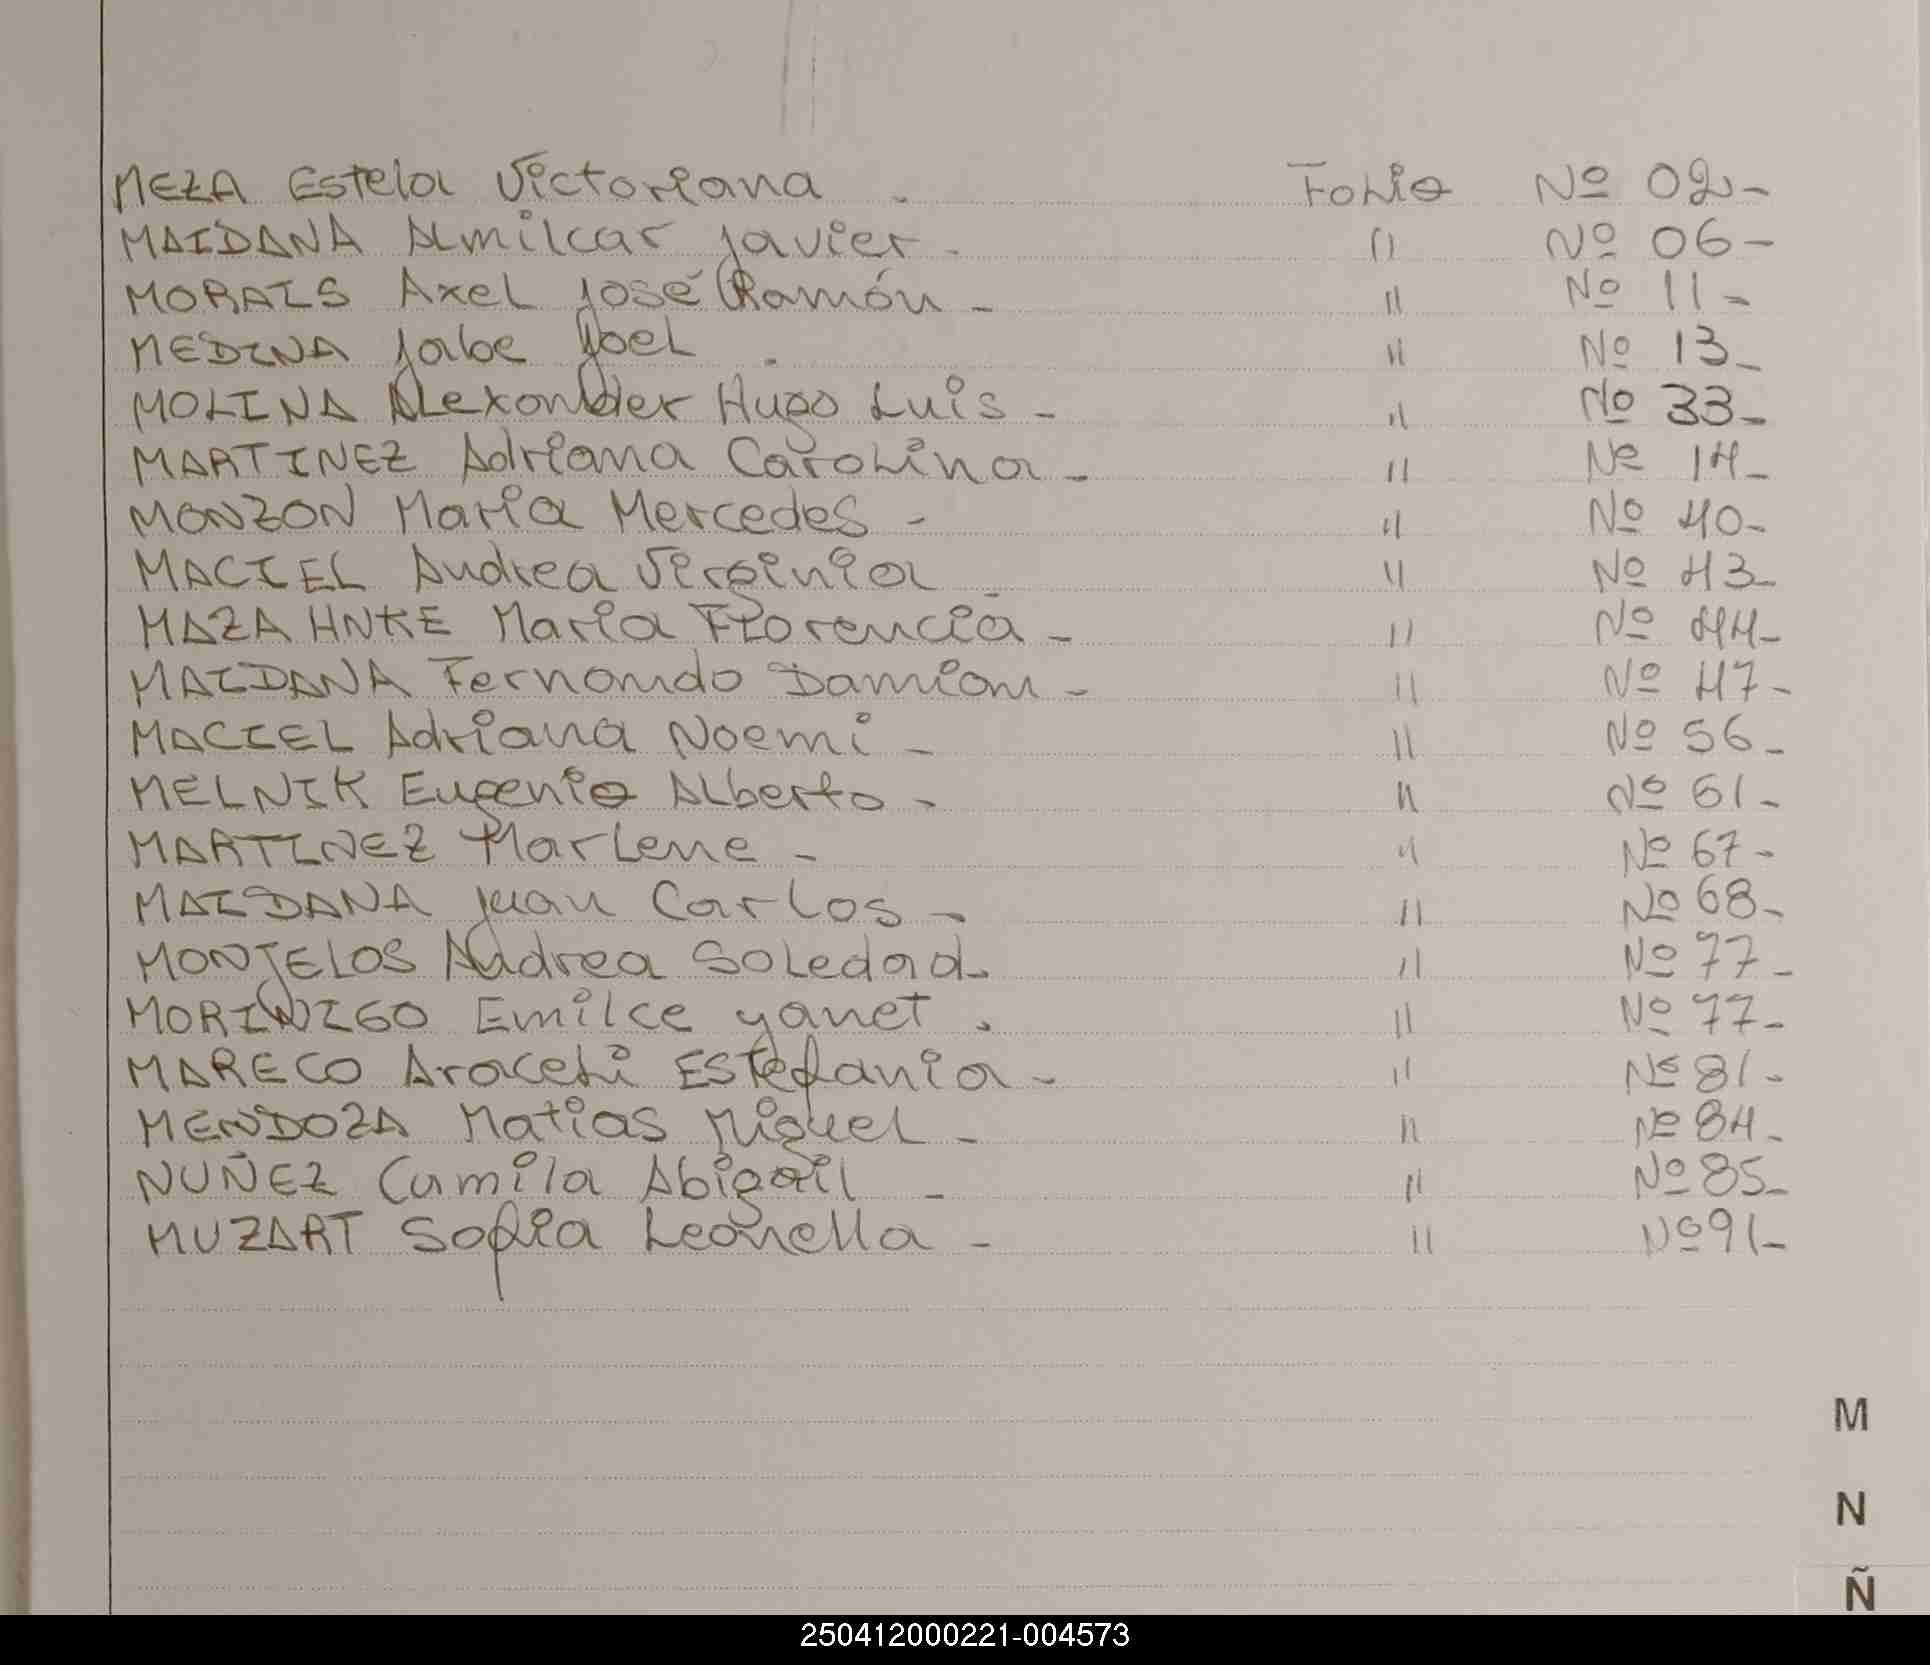 MEZA Estela Victoriana . Folio Nº 02-
MAIDANA Almilcar Javier - " Nº 06-
MORAIS Axel José Ramón - " Nº 11-
MEDINA Jabe Joel . " Nº 13-
MOLINA Alexander Hugo Luis - " Nº 33-
MARTINEZ Adriana Carolina - " Nº 14-
MONZON Maria Mercedes - " Nº 40-
MACIEL Andrea Virginia - " Nº 43-
MAZA HNKE Maria Florencia - " Nº 44-
MAIDANA Fernando Damian - " Nº 47-
MACIEL Adriana Noemi - " Nº 56-
MELNIK Eugenio Alberto - " Nº 61-
MARTINEZ Marlene - " Nº 67-
MAIDANA Juan Carlos - " Nº 68-
MONJELOS Andrea Soledad. " Nº 77-
MORINIGO Emilce Yanet . " Nº 77-
MARECO Araceli Estefania - " Nº 81-
MENDOZA Matias Miguel - " Nº 84-
NUÑEZ Camila Abigail - " Nº 85-
MUZART Sofia Leonella - " Nº 91-
M
N
Ñ
250412000221-004573